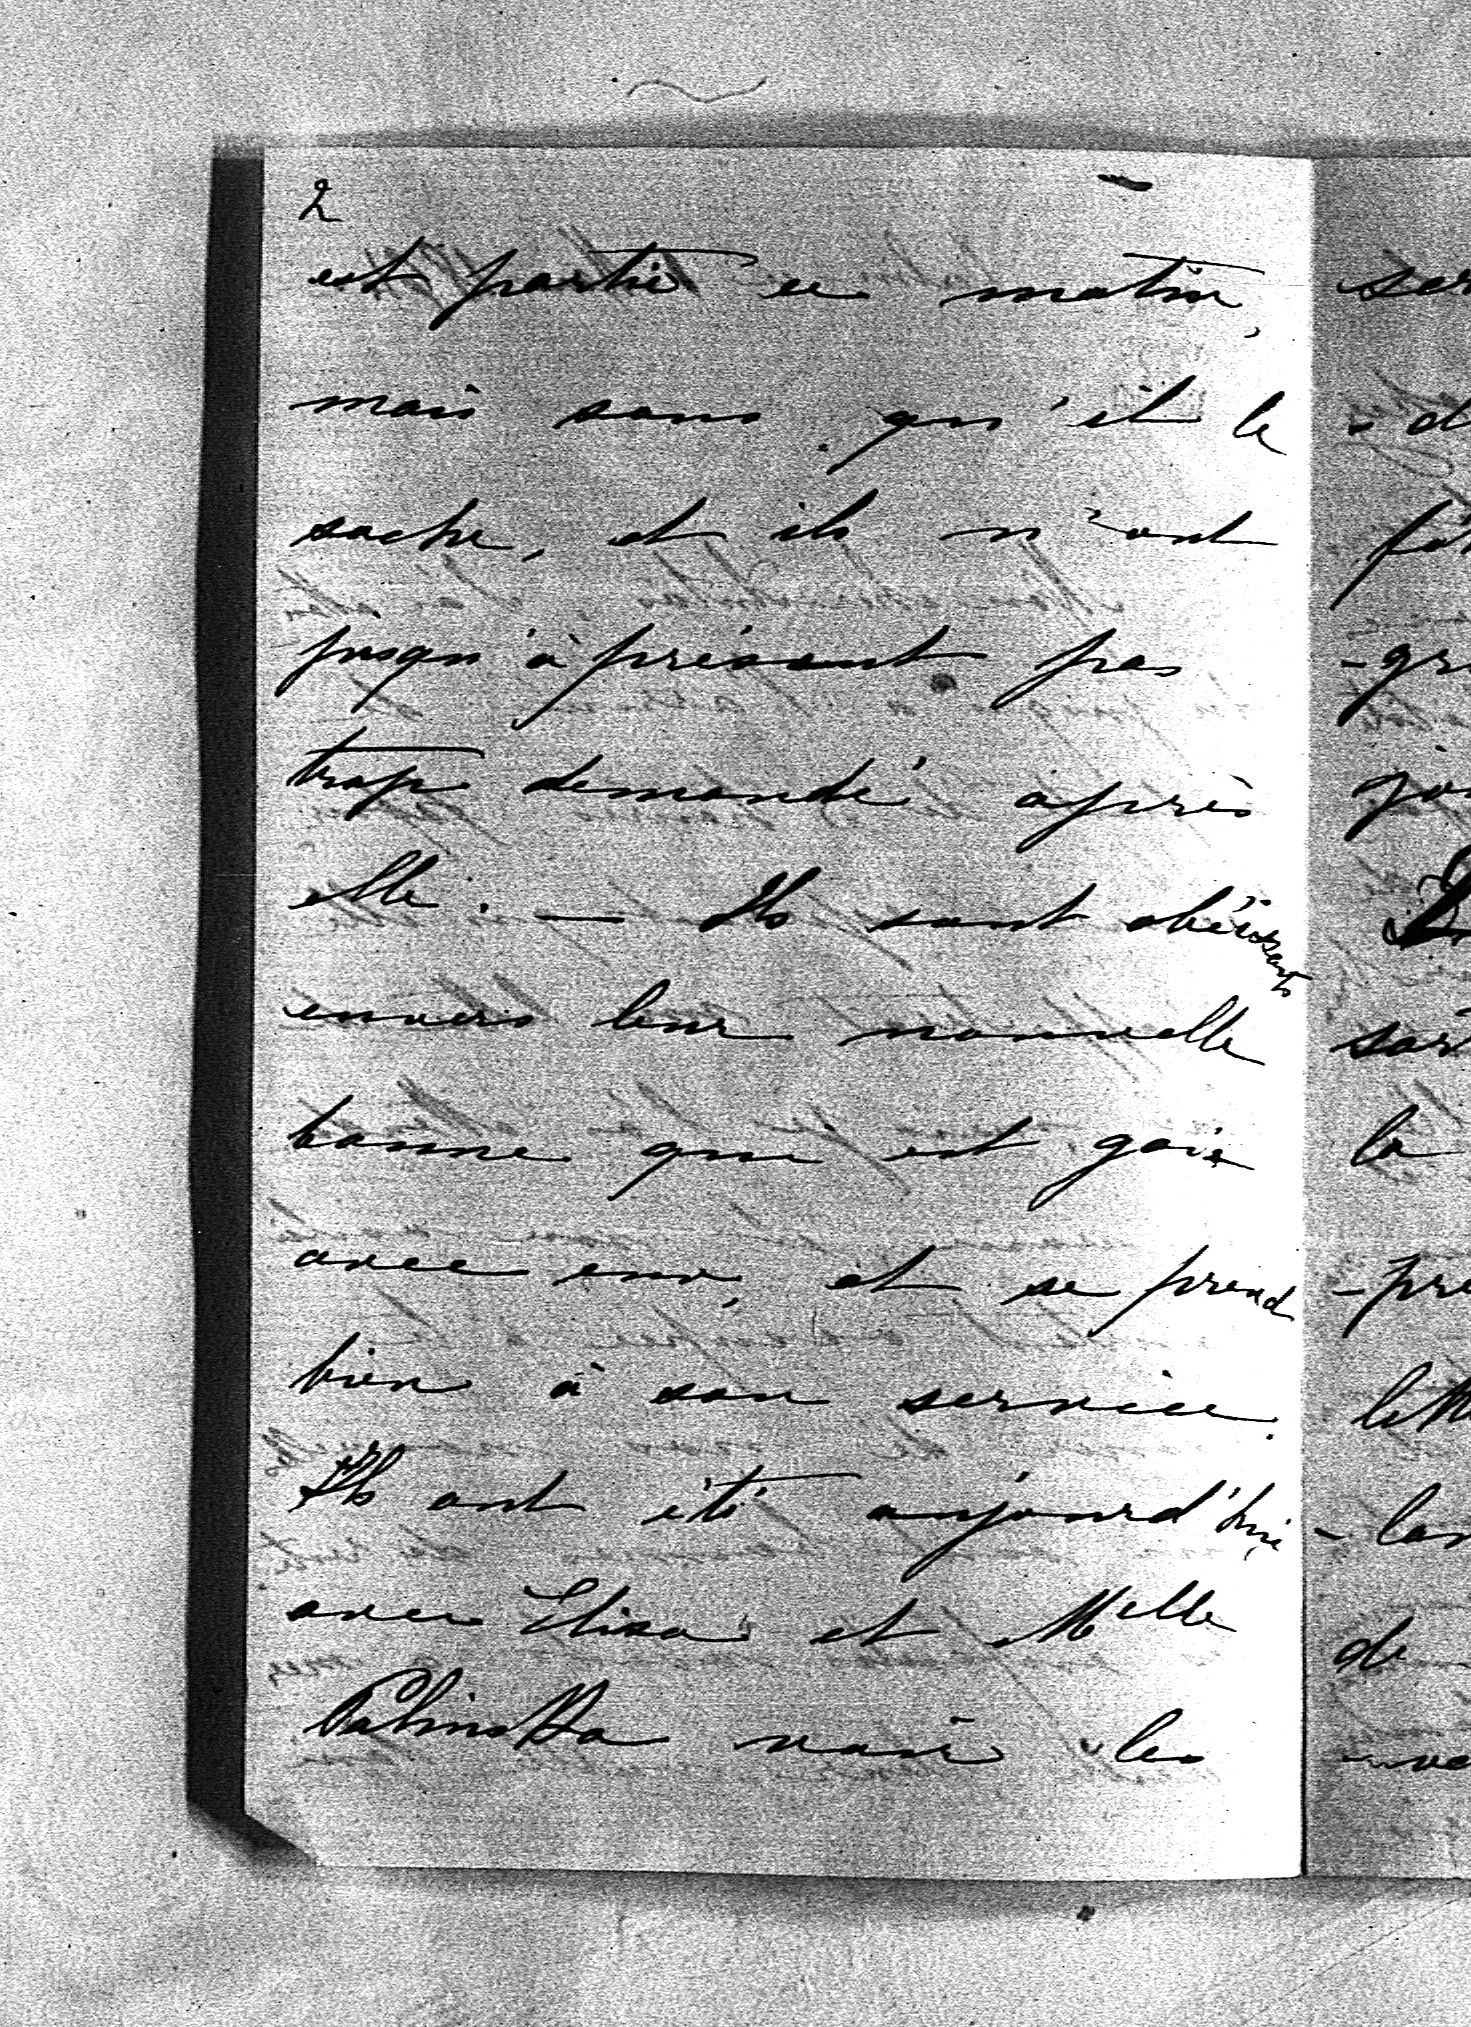 2
est partie ce matin,
mais sans qu'il le
sache, et ils n'ont
jusqu'à présent pas
trop demandé après
elle. — Ils sont obéissants
envers leur nouvelle
bonne qui est gaie
avec eux, et se prend
bien à son service.
Ils ont été aujourd'hui
avec Elisa et Melle
voir les